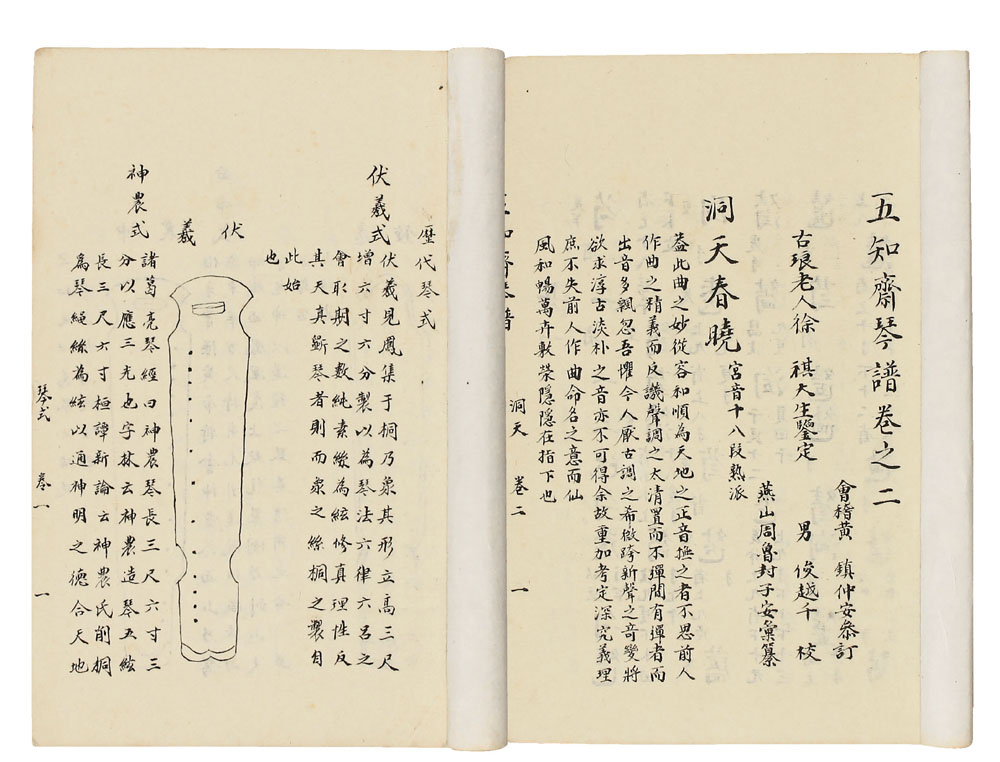 五知齋琴譜卷之二
會稽黃　鎮仲安叅訂
古琅老人徐　祺大生鑒定
男　俊越千　校
燕山周魯封子安彙纂
洞天春曉
宮音十八段熟派
葢此曲之妙從容和順為天地之正音撫之者不思前人
作曲之精義而反譏聲調之太清置而不彈間有彈者而
出音多飄忽吾懼今人厭古調之希微誇新聲之竒變將
欲求淳古淡朴之音亦不可得余故重加考定深究義理
庶不失前人作曲命名之意而仙
風和暢萬卉敷榮隱隱在指下也
洞天　卷二　一
五知齋琴譜
歷代琴式
伏羲式
伏羲見鳳集于桐乃象其形立高三尺
增六寸六分製以為琴法六律六呂之
會取朞之數純素絲為絃修真理性反
其天真斵琴者則而象之絲桐之製自
此始
也
伏
羲
神農式
諸葛亮琴經曰神農琴長三尺六寸三
分以應三光也字林云神農造琴五絃
長三尺六寸桓譚新論云神農氏削桐
為琴繩絲為絃以通神明之德合天地
琴式　卷一　一